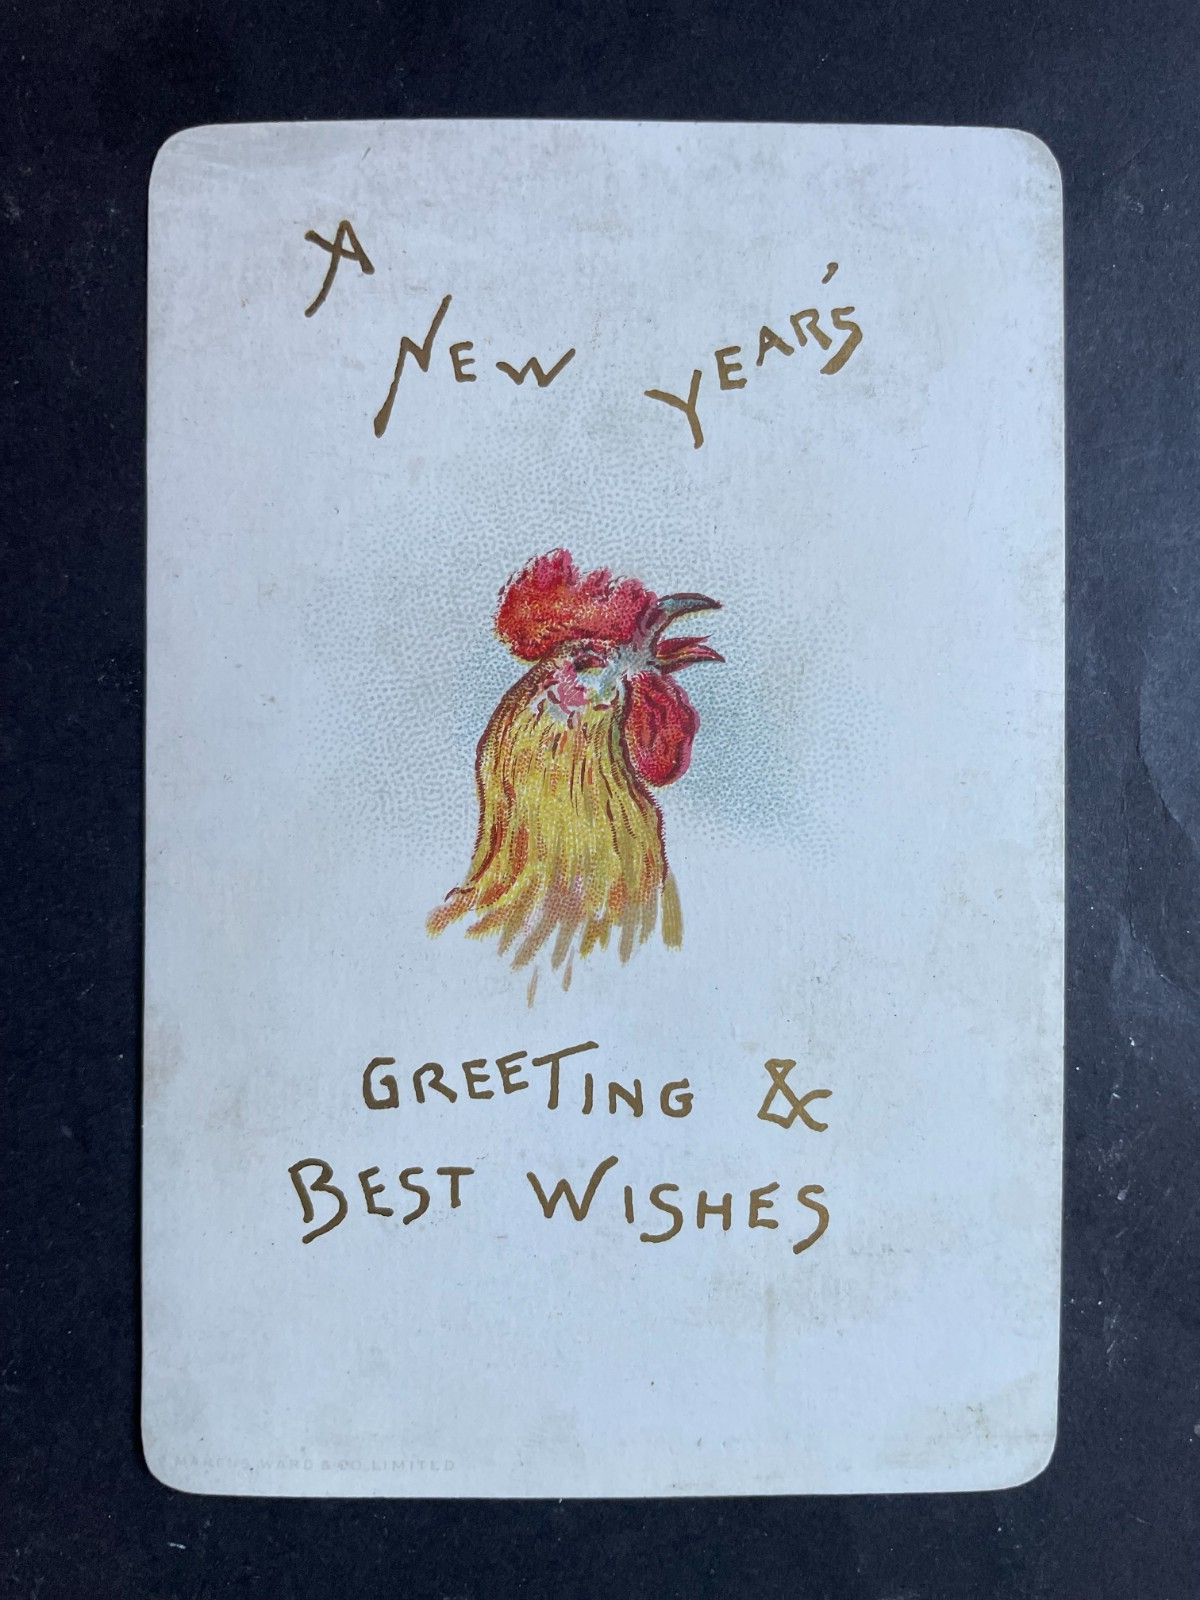 A
NEW YEAR'S
GREETING &
BEST WISHES
MARCUS WARD & CO. LIMITED